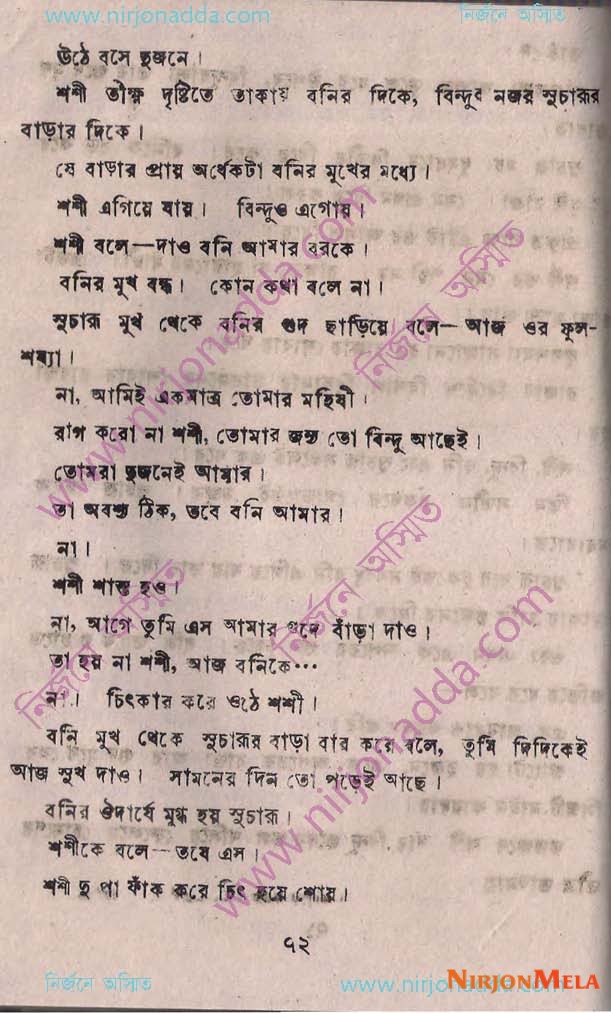 www.nirjonadda.com নির্জনে অস্মিত
উঠে বসে দুজনে।
শশী তীক্ষ্ণ দৃষ্টিতে তাকায় বনির দিকে, বিন্দুব নজর সুচারুর
বাড়ার দিকে।
যে বাড়ার প্রায় অর্ধেকটা বনির মুখের মধ্যে।
শশী এগিয়ে যায়। বিন্দুও এগোয়।
শশী বলে—দাও বনি আমার বরকে।
বনির মুখ বন্ধ। কোন কথা বলে না।
সুচারু মুখ থেকে বনির গুদ ছাড়িয়ে বলে— আজ ওর ফুল-
শয্যা।
না, আমিই একমাত্র তোমার মহিষী।
রাগ করো না শশী, তোমার জন্য তো বিন্দু আছেই।
তোমরা দুজনেই আমার।
তা অবশ্য ঠিক, তবে বনি আমার।
না।
শশী শান্ত হও।
না, আগে তুমি এস আমার গুদে বাঁড়া দাও।
তা হয় না শশী, আজ বনিকে…
না। চিৎকার করে ওঠে শশী।
বনি মুখ থেকে সুচারুর বাড়া বার করে বলে, তুমি দিদিকেই
আজ সুখ দাও। সামনের দিন তো পড়েই আছে।
বনির ঔদার্যে মুগ্ধ হয় সুচারু।
শশীকে বলে—তবে এস।
শশী দু পা ফাঁক করে চিৎ হয়ে শোয়।
৭২
নির্জনে অস্মিত www.nirjonadda.com
NIRJONMELA
www.nirjonadda.com
নির্জনে অস্মিত
নির্জনে অস্মিত
নির্জনে অস্মিত
www.nirjonadda.com